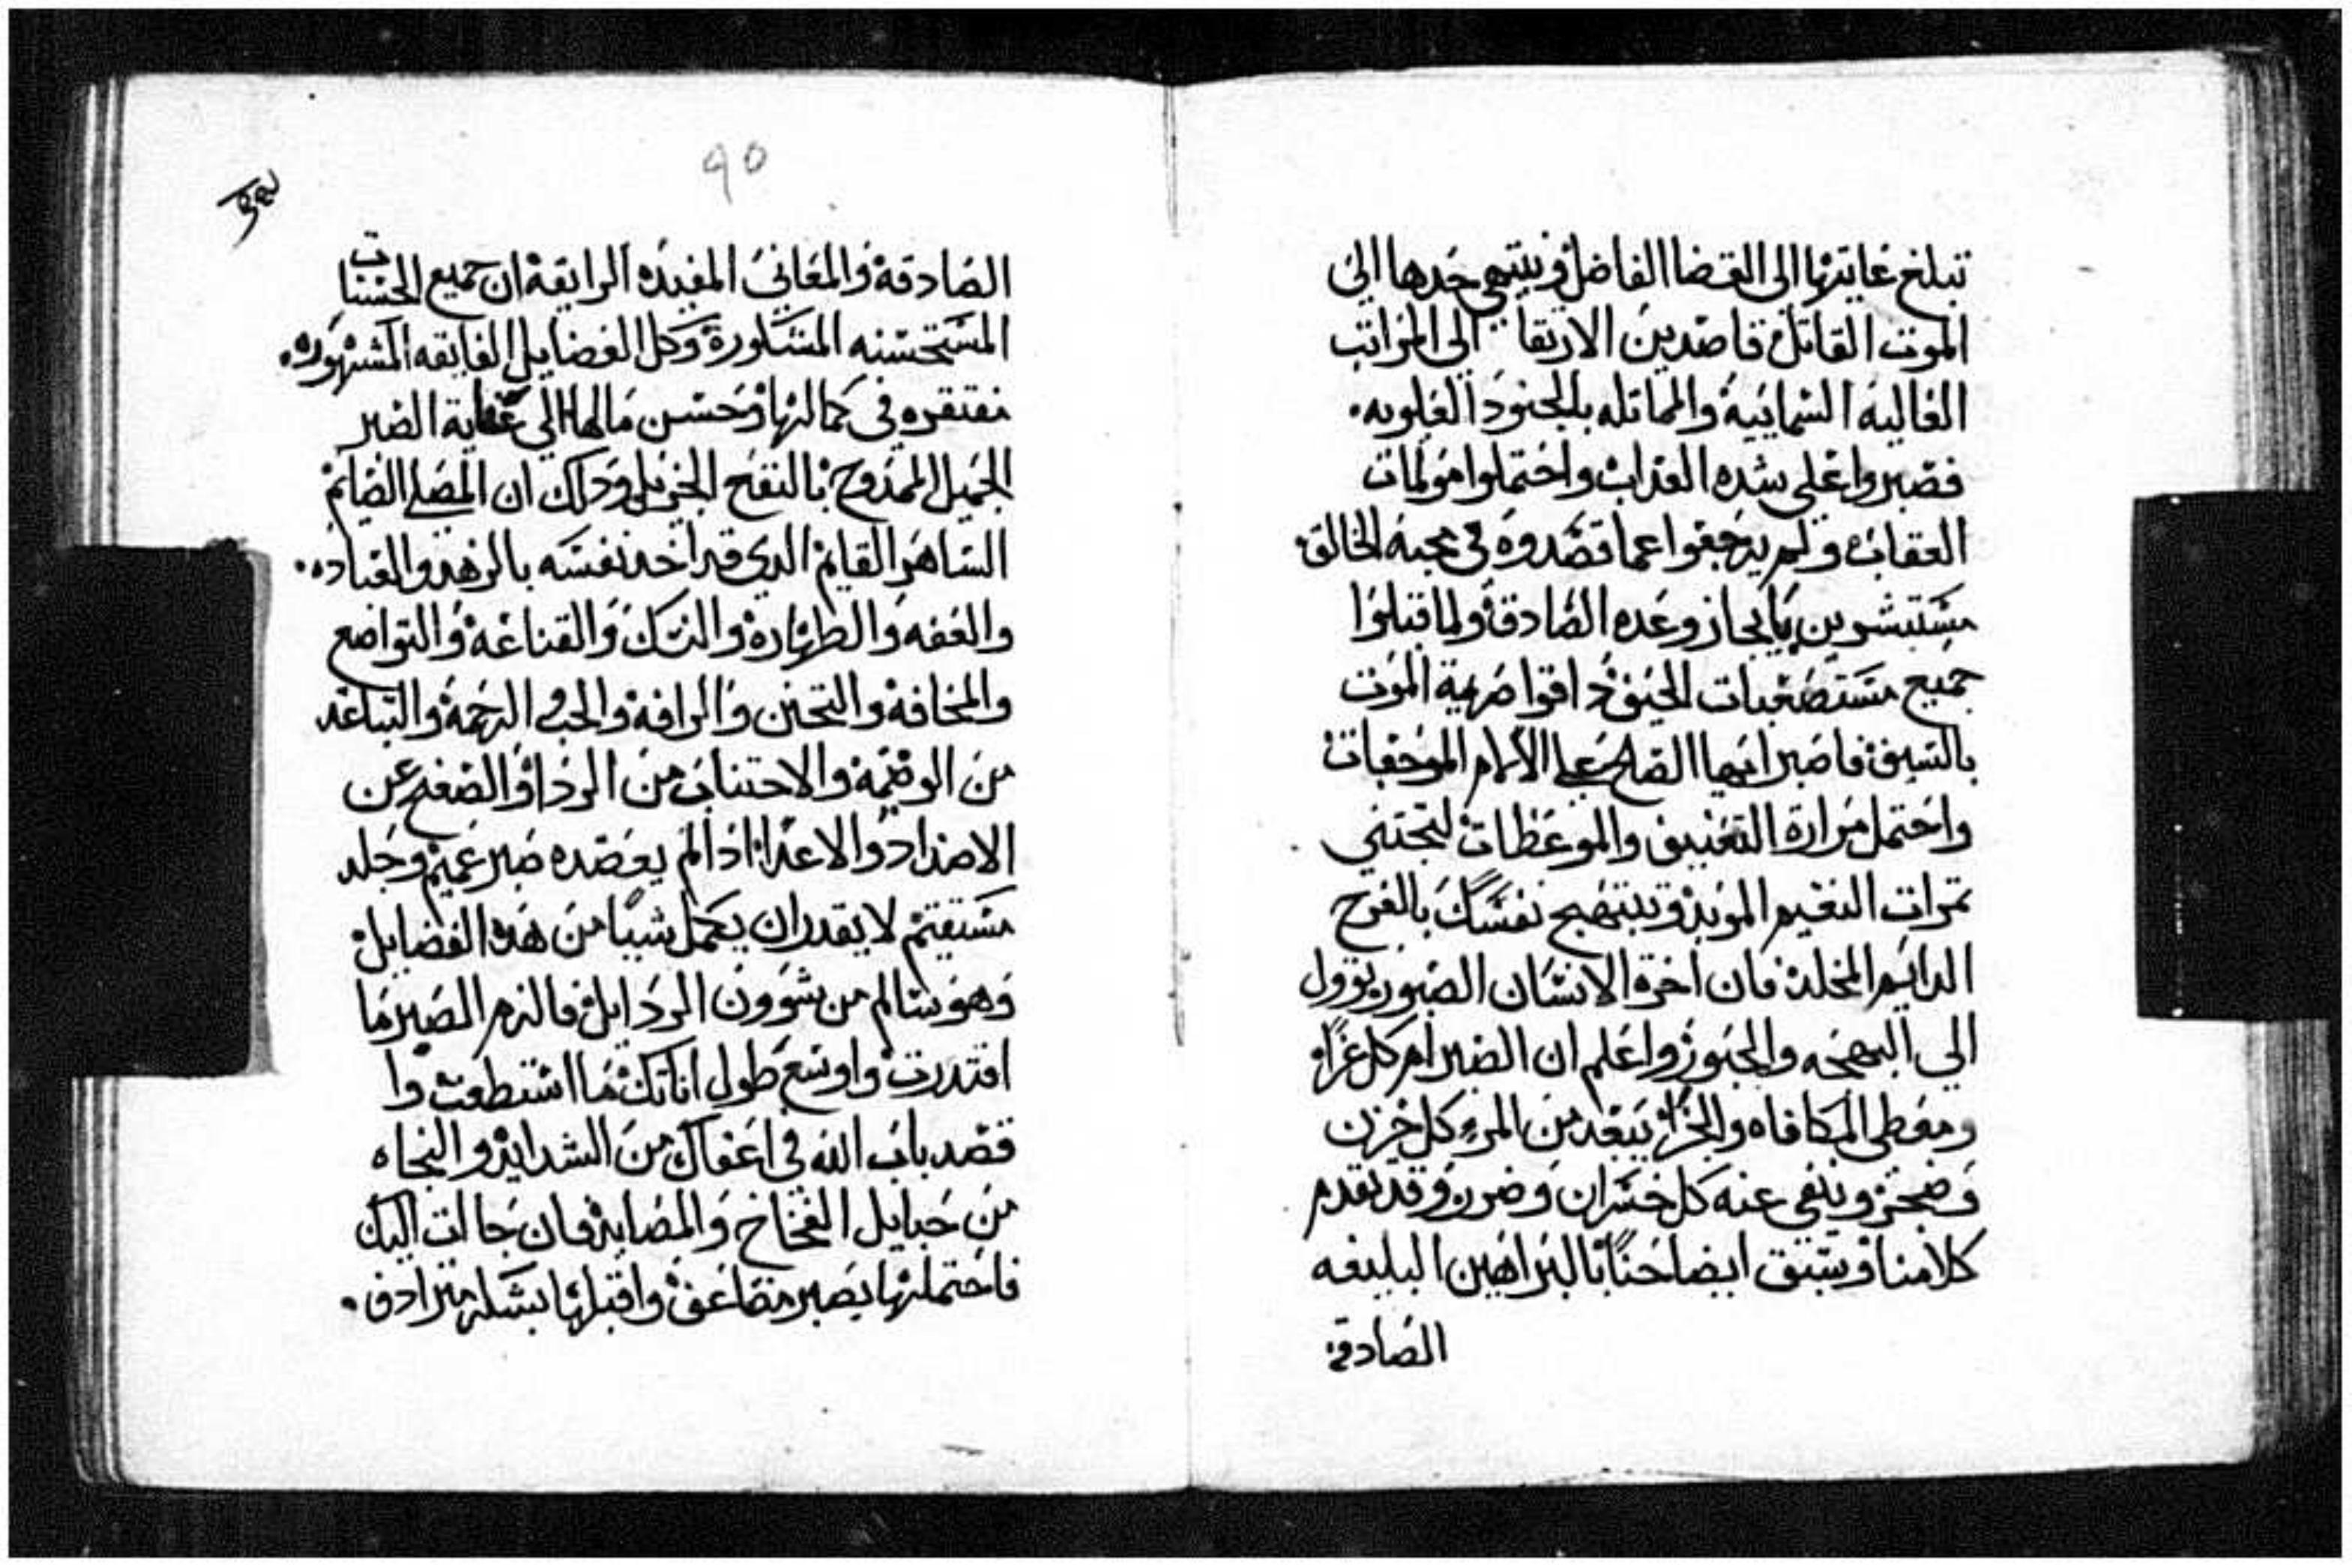 تبلغ غايتها الى القضا الفاضل وينتهي حدها الى
الموت القاتل قاصدين الارتقا الى المراتب
العاليه السمايية والمماتله بالجنود العلويه.
فصبروا على شده العداب واحتملوا مولمات
العقاب ولم يرجعوا عما قصدوه في محبة الخالق.
مستبشرين بايجاز وعده الصادق ولما قبلوا
جميع مستصعبات الحنق داقوا ضربة الموت
بالسيف فاصبر ايها الصالح على الالام الموجعات
واحتمل مرارة التعنيف والموعظات لتجتني
تمرات النعيم الموبد ويبتهج نفسك بالفرح
الدايم المخلد فان اخرة الانسان الصبور يوول
الى البهجه والحبور واعلم ان الصبر ام كل عزا
ومعطى المكافاه والجزا يبعد من المرء كل حزن
وضجر وينفي عنه كل خسران وضرر وقد تقدم
كلامنا وسبق ايضاحنا بالبراهين البليغه
الصادقة
٩٥
الصادقة والمعاني المفيده الرايقة ان جميع الحسنات
المستحسنه المشكورة وكل الفضايل الفايقه المشهوره.
مفتقره في كمالها وحسن مالها الى غاية الصبر
الجميل الممدوح بالنفح الجزيل ودلك ان المصلى الصايم
الساهر القايم الدي قد اخد نفسه بالزهد والعباده.
والعفه والطهارة والنسك والقناعة والتواضع
والمخافة والتحنن والرافة والحب والرحمة والتباعد
من الوضيمة والاجتناب من الردا والصفح عن
الاضداد والاعدا اذا لم يعضده صبر عميم وجلد
مستقيم لا يقدر ان يكمل شيا من هذه الفضايل
وهو سالم من شوون الردايل فالزم الصبر ما
اقتدرت واوسع طول اناتك ما استطعت وا
قصد باب الله في اعفاك من الشدايد والنجاه
من حبايل الفخاخ والمصايد فان جالت اليك
فاحتملها بصبر مضاعف واقبلها بشكر مترادف.